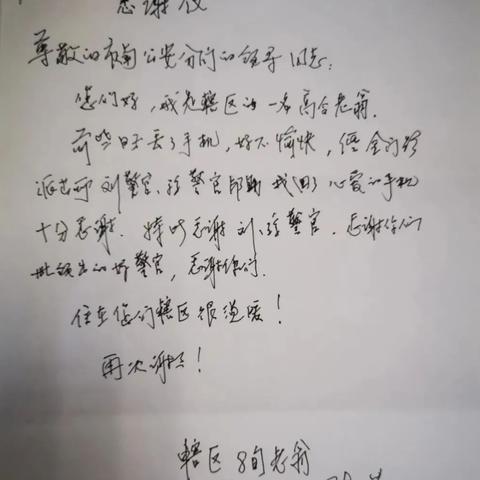 感谢仪
尊敬的市南公安分局的领导同志：
您们好，我是辖区的一名高令老翁.
前些日子丢了手机，好不愉快，经金门路
派出所刘警官、警官帮助我找回了心爱的手机
十分感谢. 特此感谢刘、警官. 感谢你们
出的好警官，感谢你们.
住在您们辖区很温暖！
再次谢谢！
辖区8旬老翁